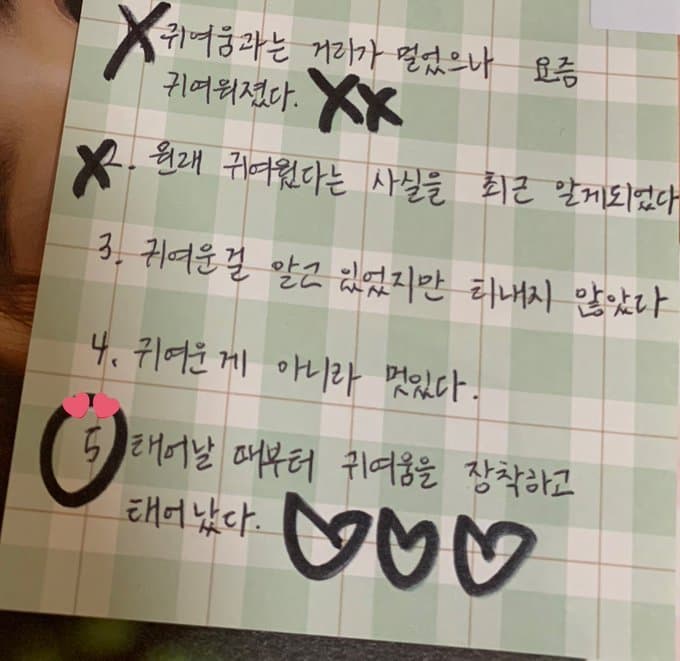 귀여움과는 거리가 멀었으나 요즘
귀여워졌다. XX
2. 원래 귀여웠다는 사실을 최근 알게되었다
3. 귀여운걸 알고 있었지만 티내지 않았다
4. 귀여운게 아니라 멋있다.
5 태어날 때부터 귀여움을 장착하고
태어났다.